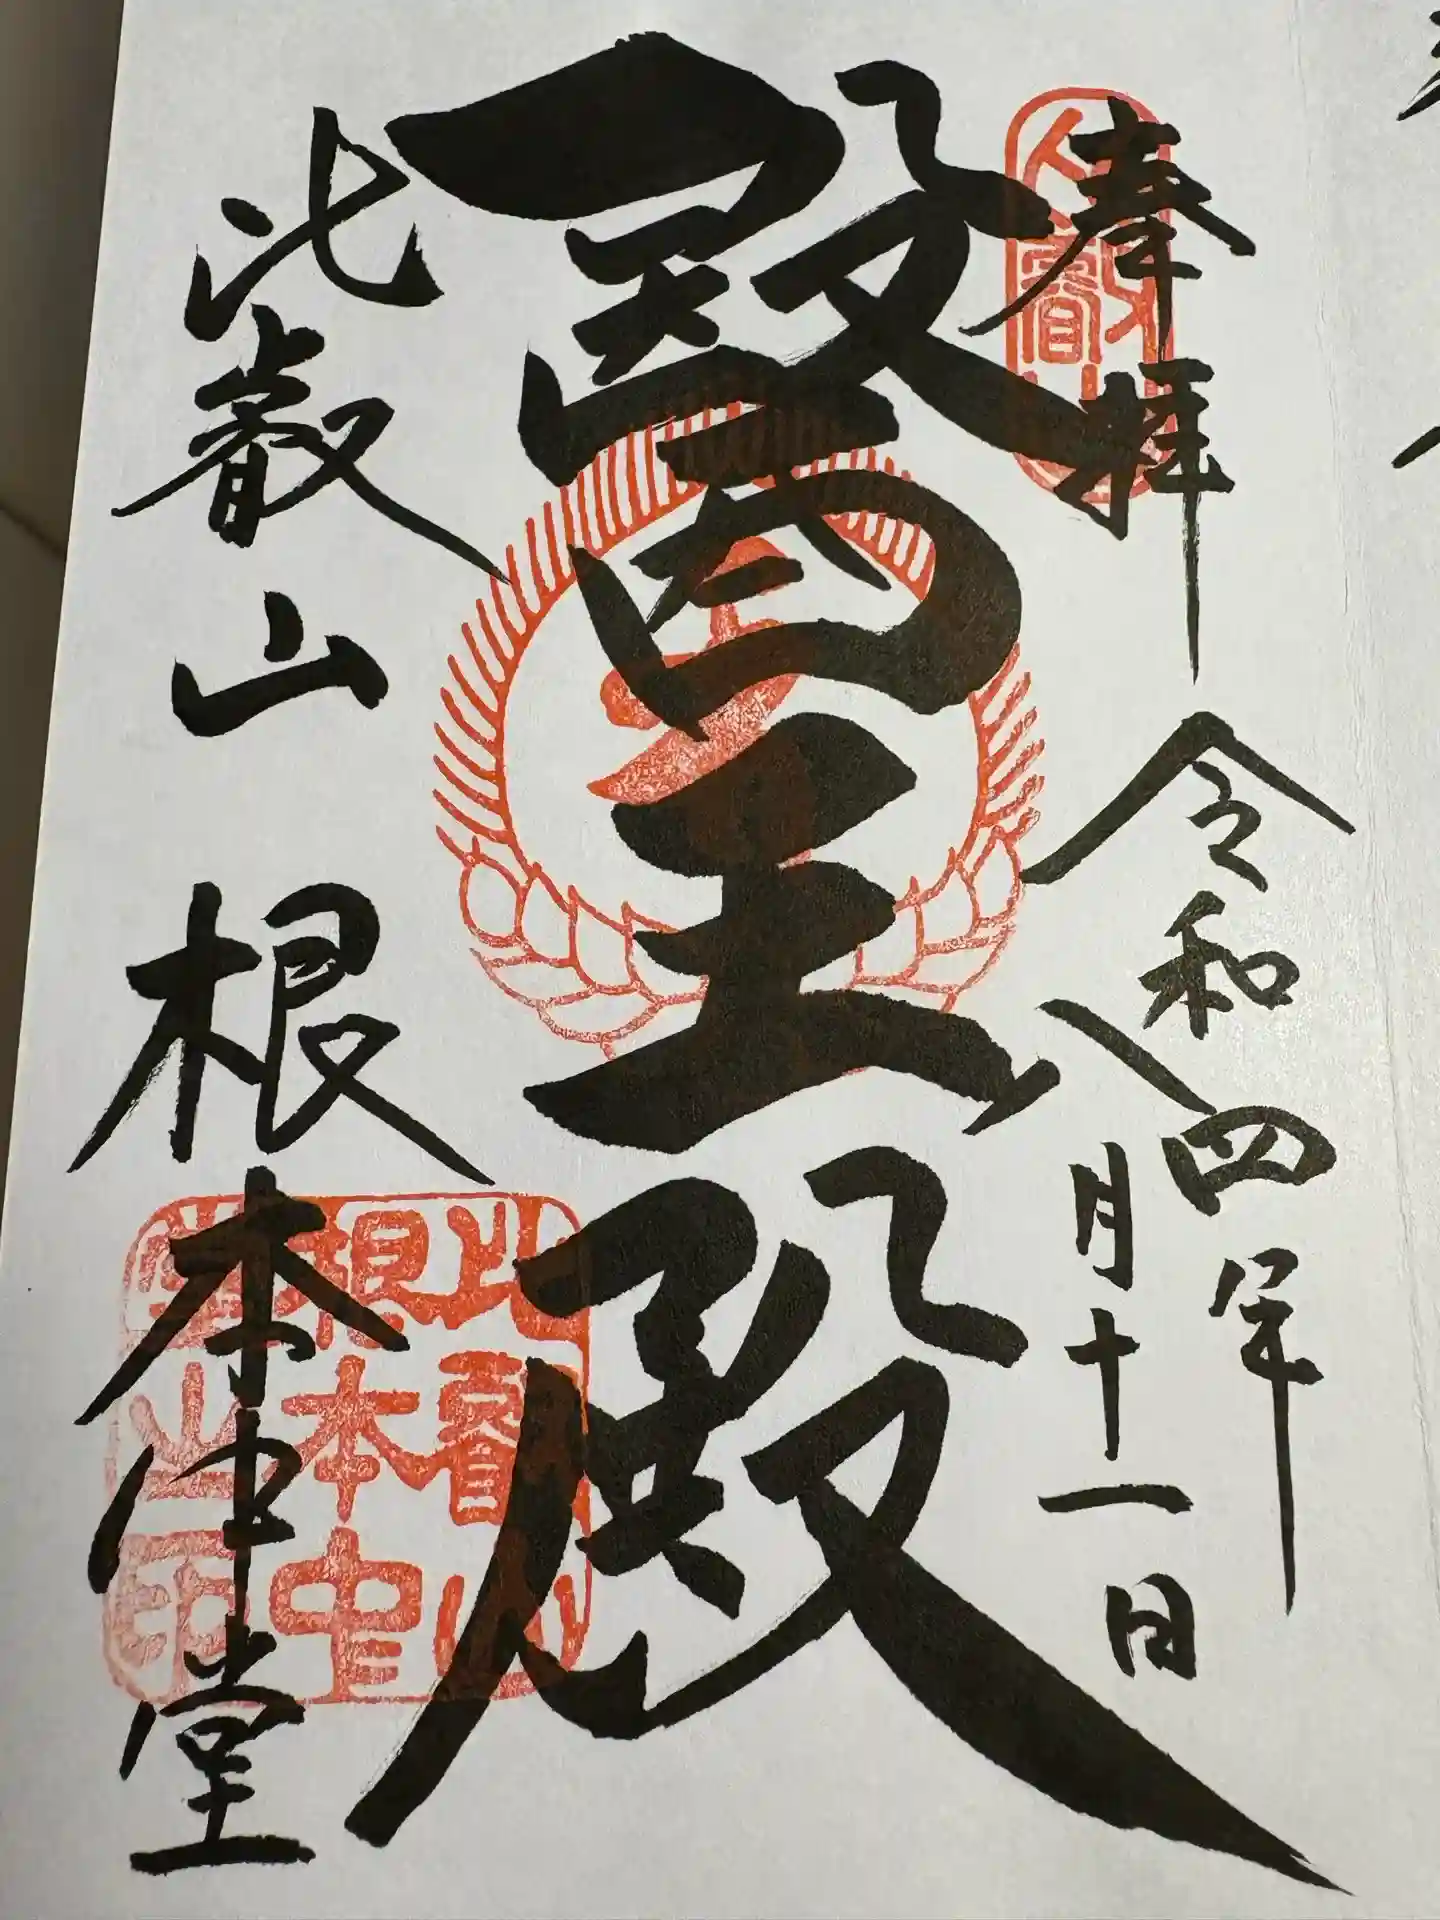 奉拝
令和四年
八月十一日
醫王殿
比叡山
根本中堂
比叡山
根本中
堂之印